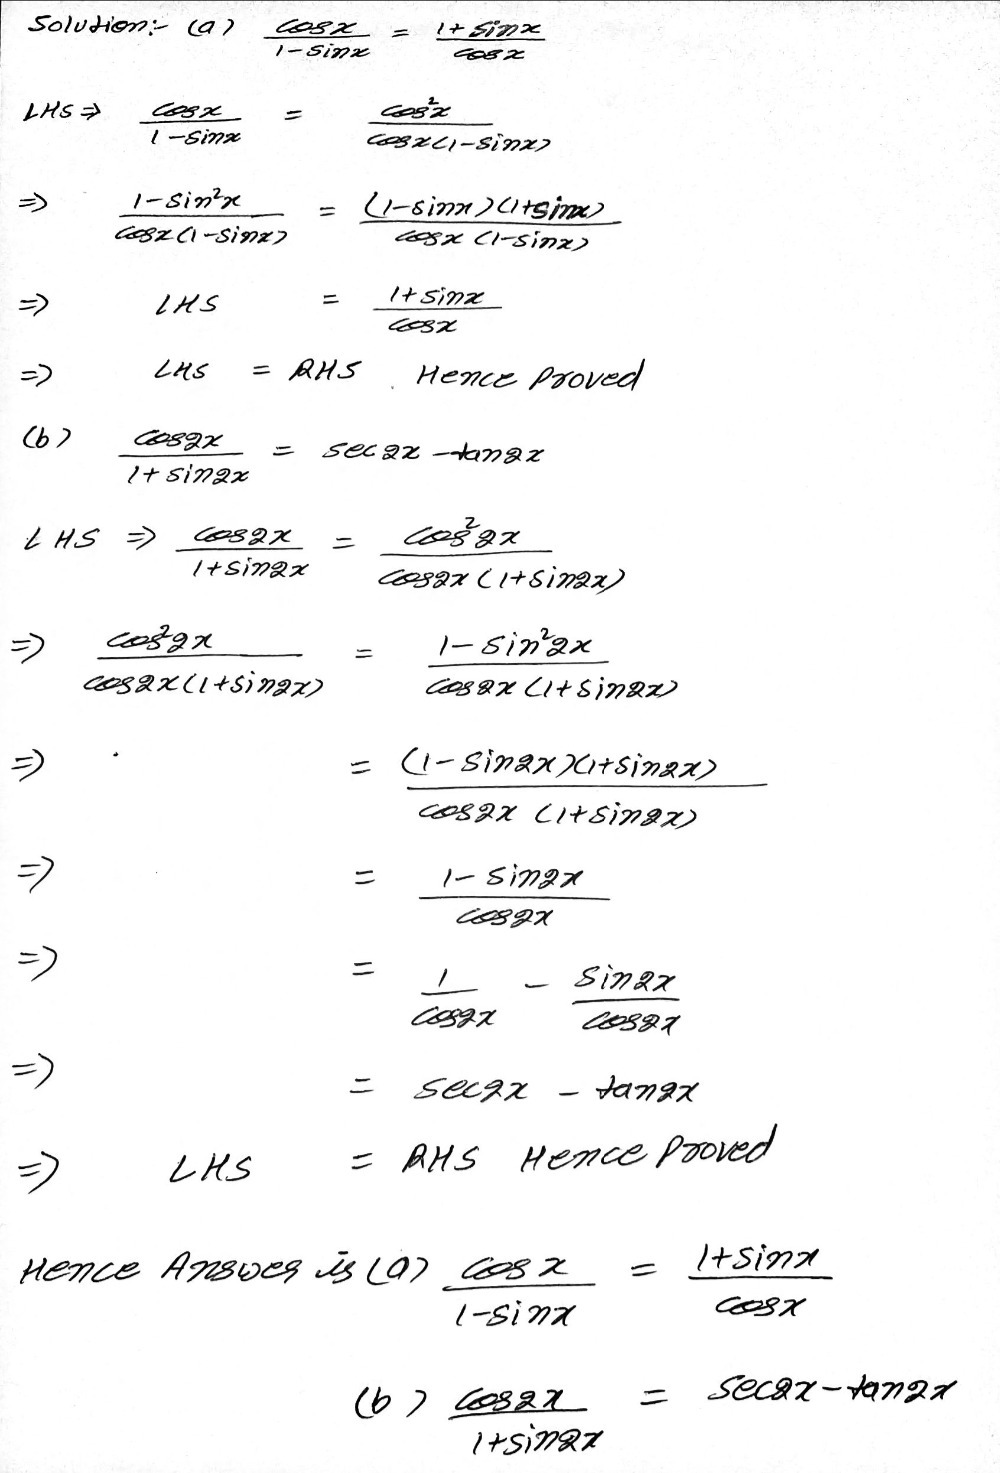 Solution:- (a) cosx/1-sinx = 1+sinx/cosx
LHS ⇒ cosx/1-sinx = cos²x/cosx(1-sinx)
⇒ 1-sin²x/cosx(1-sinx) = (1-sinx)(1+sinx)/cosx(1-sinx)
⇒ LHS = 1+sinx/cosx
⇒ LHS = RHS . Hence Proved
(b) cos2x/1+sin2x = sec2x-tan2x
LHS ⇒ cos2x/1+sin2x = cos²2x/cos2x(1+sin2x)
⇒ cos²2x/cos2x(1+sin2x) = 1-sin²2x/cos2x(1+sin2x)
⇒ = (1-sin2x)(1+sin2x)/cos2x(1+sin2x)
⇒ = 1-sin2x/cos2x
⇒ = 1/cos2x - sin2x/cos2x
⇒ = sec2x - tan2x
⇒ LHS = RHS Hence Proved
Hence Answer is (a) cosx/1-sinx = 1+sinx/cosx
(b) cos2x/1+sin2x = sec2x-tan2x